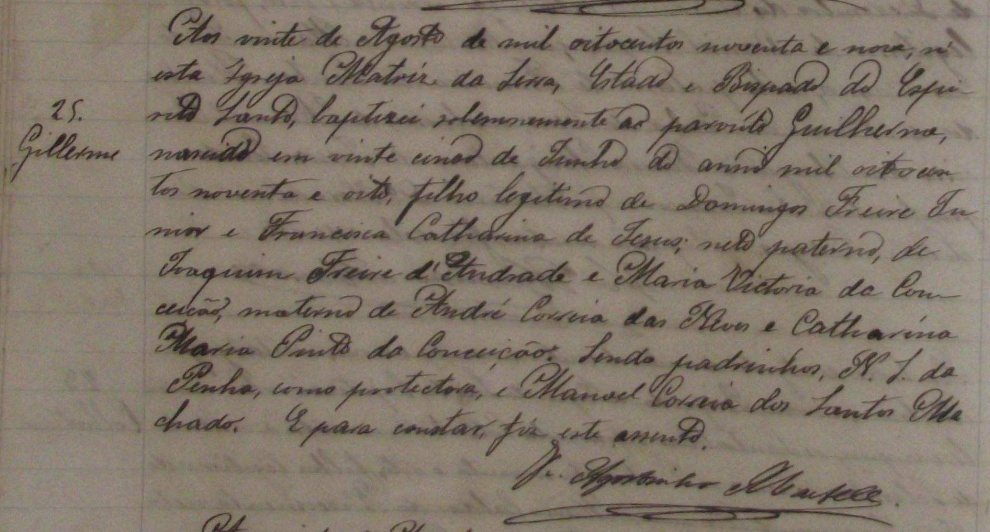 25.
Gillerme
Aos vinte de Agosto de mil oitocentos noventa e nove, n'
esta Igreja Matriz da Serra, Estado e Bispado do Espi-
rito Santo, baptizei solemnemente ao parvulo Guilherme,
nascido em vinte cinco de Junho do anno mil oitocen
tos noventa e oito, filho legitimo de Domingos Freire Ju
nior e Francisca Catharina de Jesus; neto paterno, de
Joaquim Freire d'Andrade e Maria Victoria da Con-
ceição, materno de André Correia das Neves e Catharina
Maria Pinto da Conceição. Sendo padrinhos, N. S. da
Penha, como protectora, e Manoel Correia dos Santos Ma
chado. E para constar, fiz este assento.
Agostinho